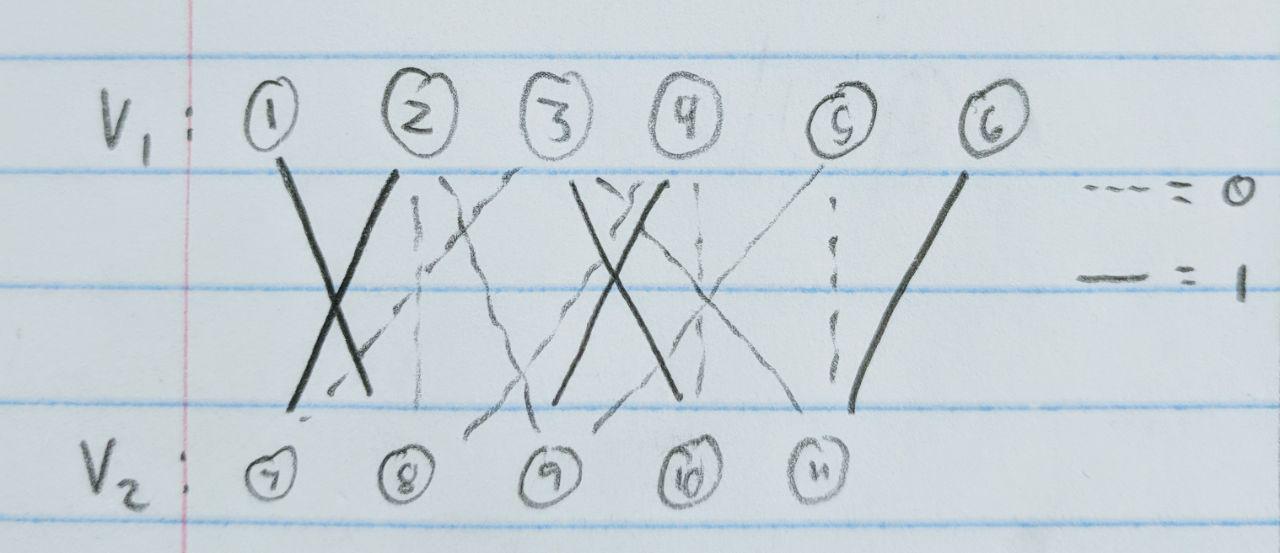 V₁ : 1 2 3 4 5 6
---- = 0
— = 1
V₂ : 7 8 9 10 11